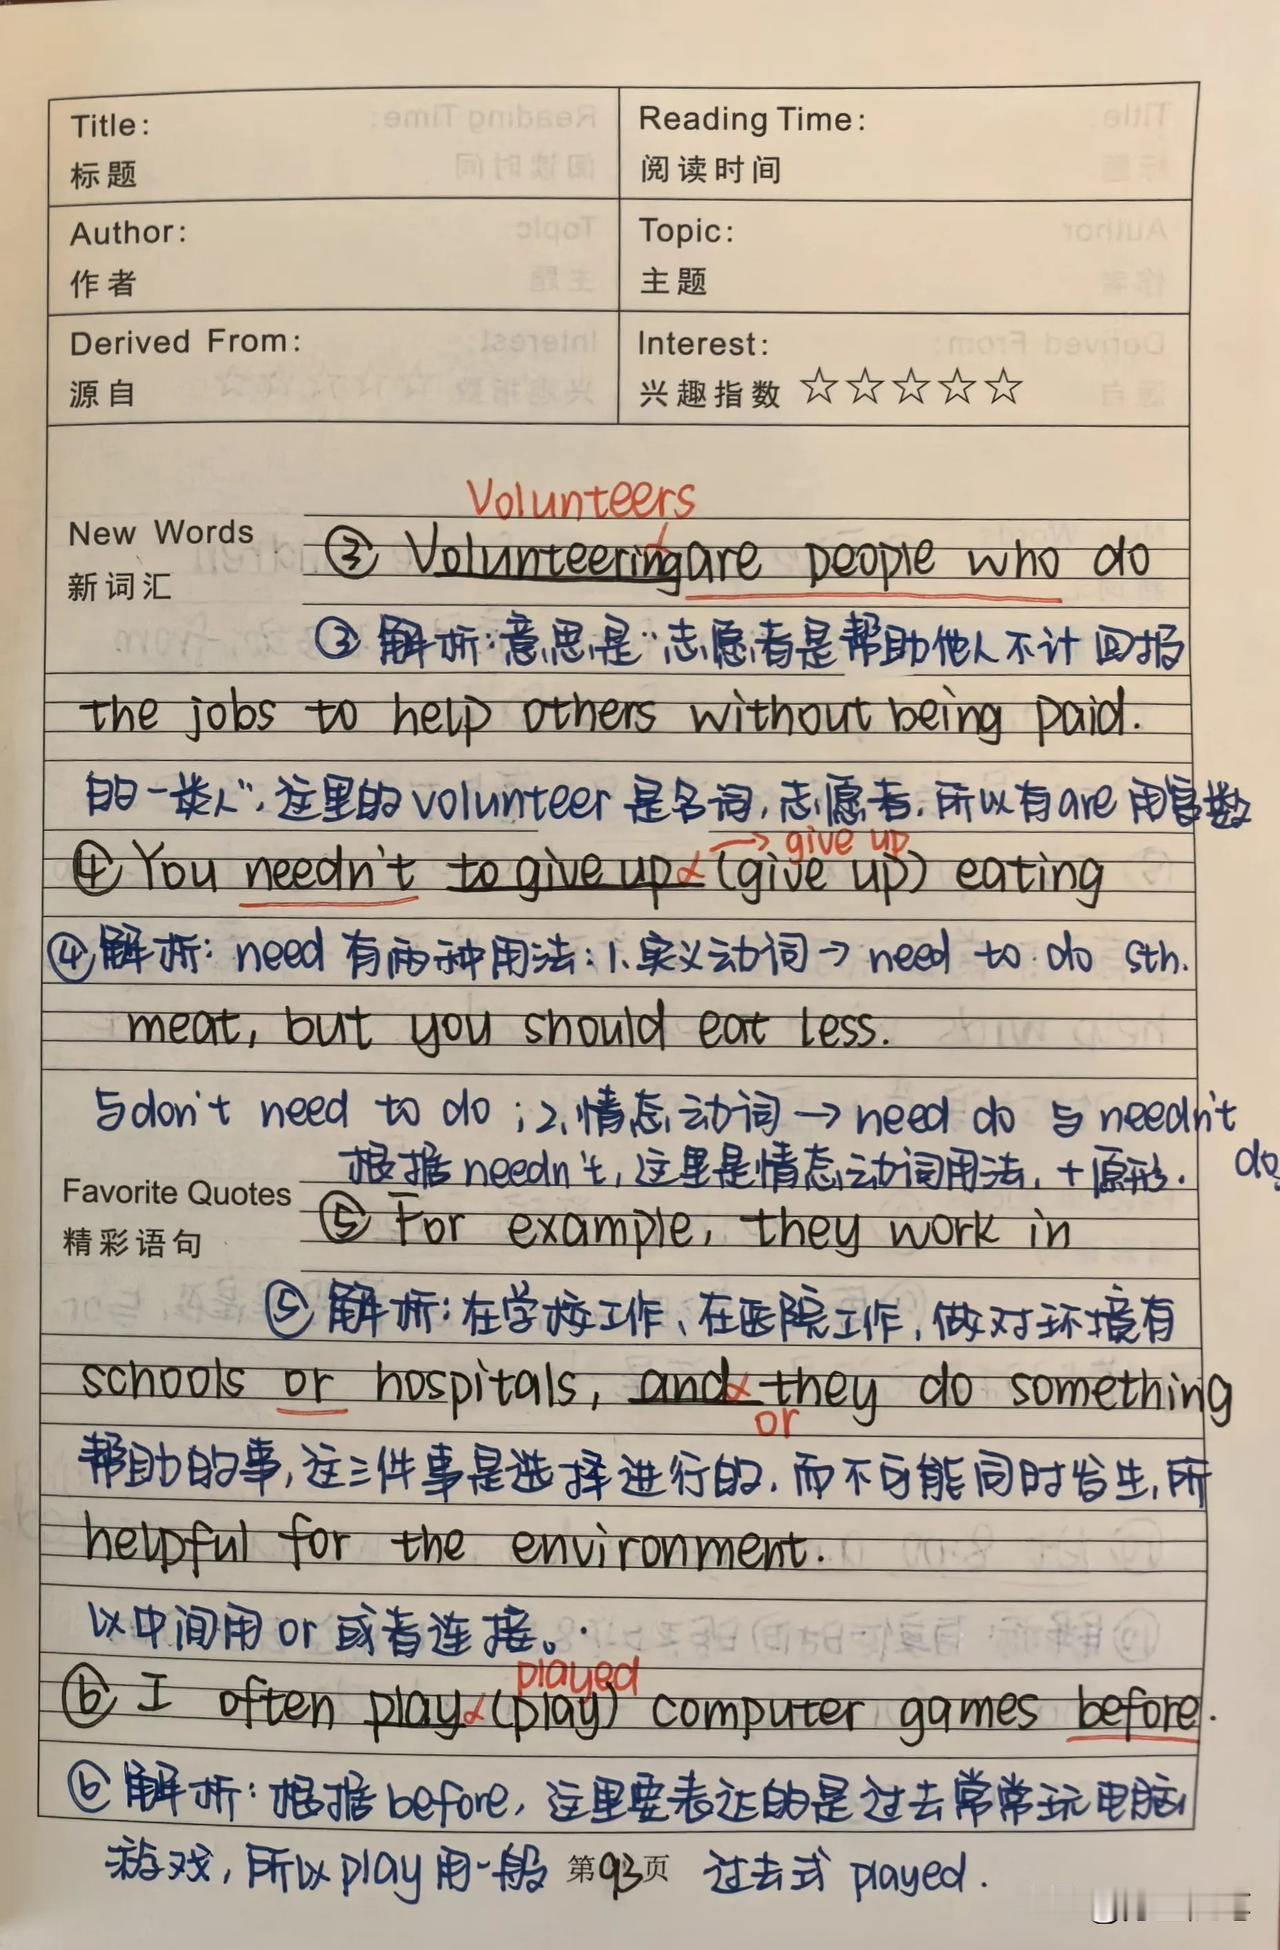 Title:
标题
Reading Time:
阅读时间
Author:
作者
Topic:
主题
Derived From:
源自
Interest:
兴趣指数 ☆☆☆☆☆
Volunteers
New Words
新词汇
③ Volunteering are people who do
③ 解析:意思是"志愿者是帮助他人不计回报
the jobs to help others without being paid.
的一类人",这里的volunteer是名词,志愿者,所以有are用复数
→ give up
④ You needn't to give up (give up) eating
④ 解析: need 有两种用法:1.实义动词→ need to do sth.
meat, but you should eat less.
与don't need to do ;2.情态动词→ need do 与 needn't
do.
根据needn't,这里是情态动词用法,+原形.
Favorite Quotes
精彩语句
⑤ For example, they work in
⑤ 解析:在学校工作、在医院工作,做对环境有
schools or hospitals, and they do something
or
帮助的事,这三件事是选择进行的,而不可能同时发生,所
helpful for the environment.
以中间用or或者连接。
played
⑥ I often play (play) computer games before.
⑥ 解析:根据before,这里要表达的是过去常常玩电脑
游戏,所以play用一般 过去式 played.
第93页